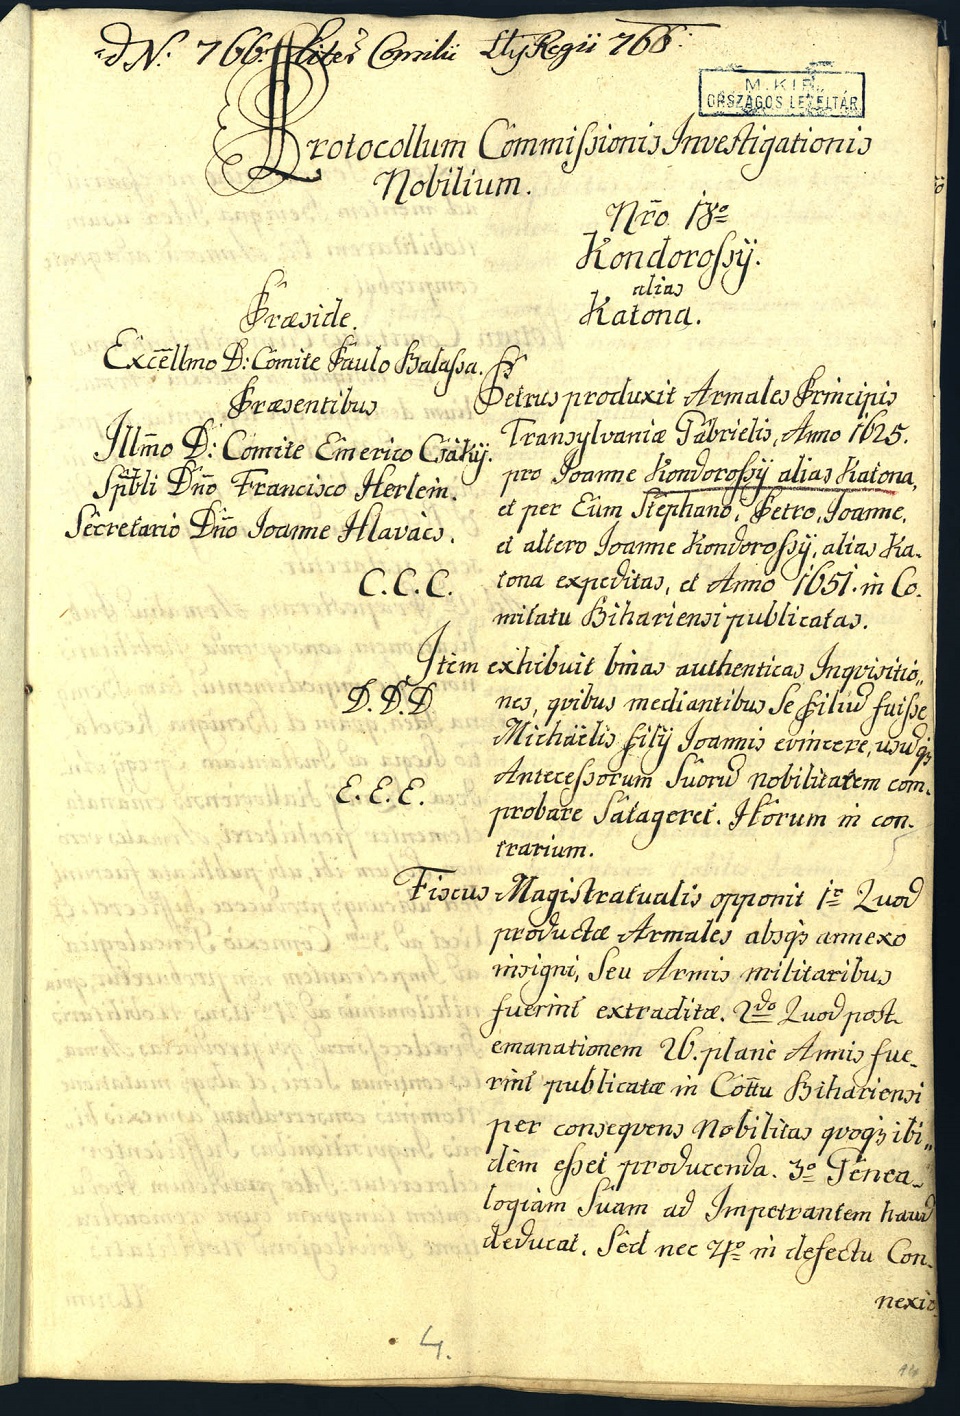 ad N: 766. Lites Consilii Ltt Regii 766.
M. KIR.
ORSZÁGOS LEVÉLTÁR
Protocollum Commissionis Investigationis
Nobilium.
Nro 18o
Kondorossÿ.
alias
Katona.
Præside.
Excellmo D: Comite Paulo Balassa.
Præsentibus
Illmo D: Comite Emerico Csákÿ.
Sptbli Dno Francisco Herlein.
Secretario Dno Joanne Hlavács.
Petrus produxit Armales Principis
Transylvaniæ Gabrielis, Anno 1625.
pro Joanne Kondorossÿ alias Katona,
et per Eum Stephano, Petro, Joanne,
et altero Joanne Kondorossÿ, alias Ka-
C.C.C. tona expeditas, et Anno 1651. in Co-
mitatu Bihariensi publicatas.
Item exhibuit binas authenticas Inqvisitio„
D.D.D nes, qvibus mediantibus Se filiu fuisse
Michäelis filÿ Joannis evincere, usuqz
E.E.E. Antecessorum Suoru nobilitatem com-
probare Satageret. Horum in con-
trarium.
Fiscus Magistratualis opponit 1o Quod
productæ Armales absqz annexo
insigni, Seu Armis militaribus
fuerint extraditæ. 2do Quod post
emanationem 26. plane Annis fue-
rint publicatæ in Cottu Bihariensi
per conseqvens Nobilitas qvoqz ibi„
dem esset producenda. 3o Genea-
logiam Suam ad Impetrantem haud
deducat. Sed nec 4to in defectu Con-
nexio
4.